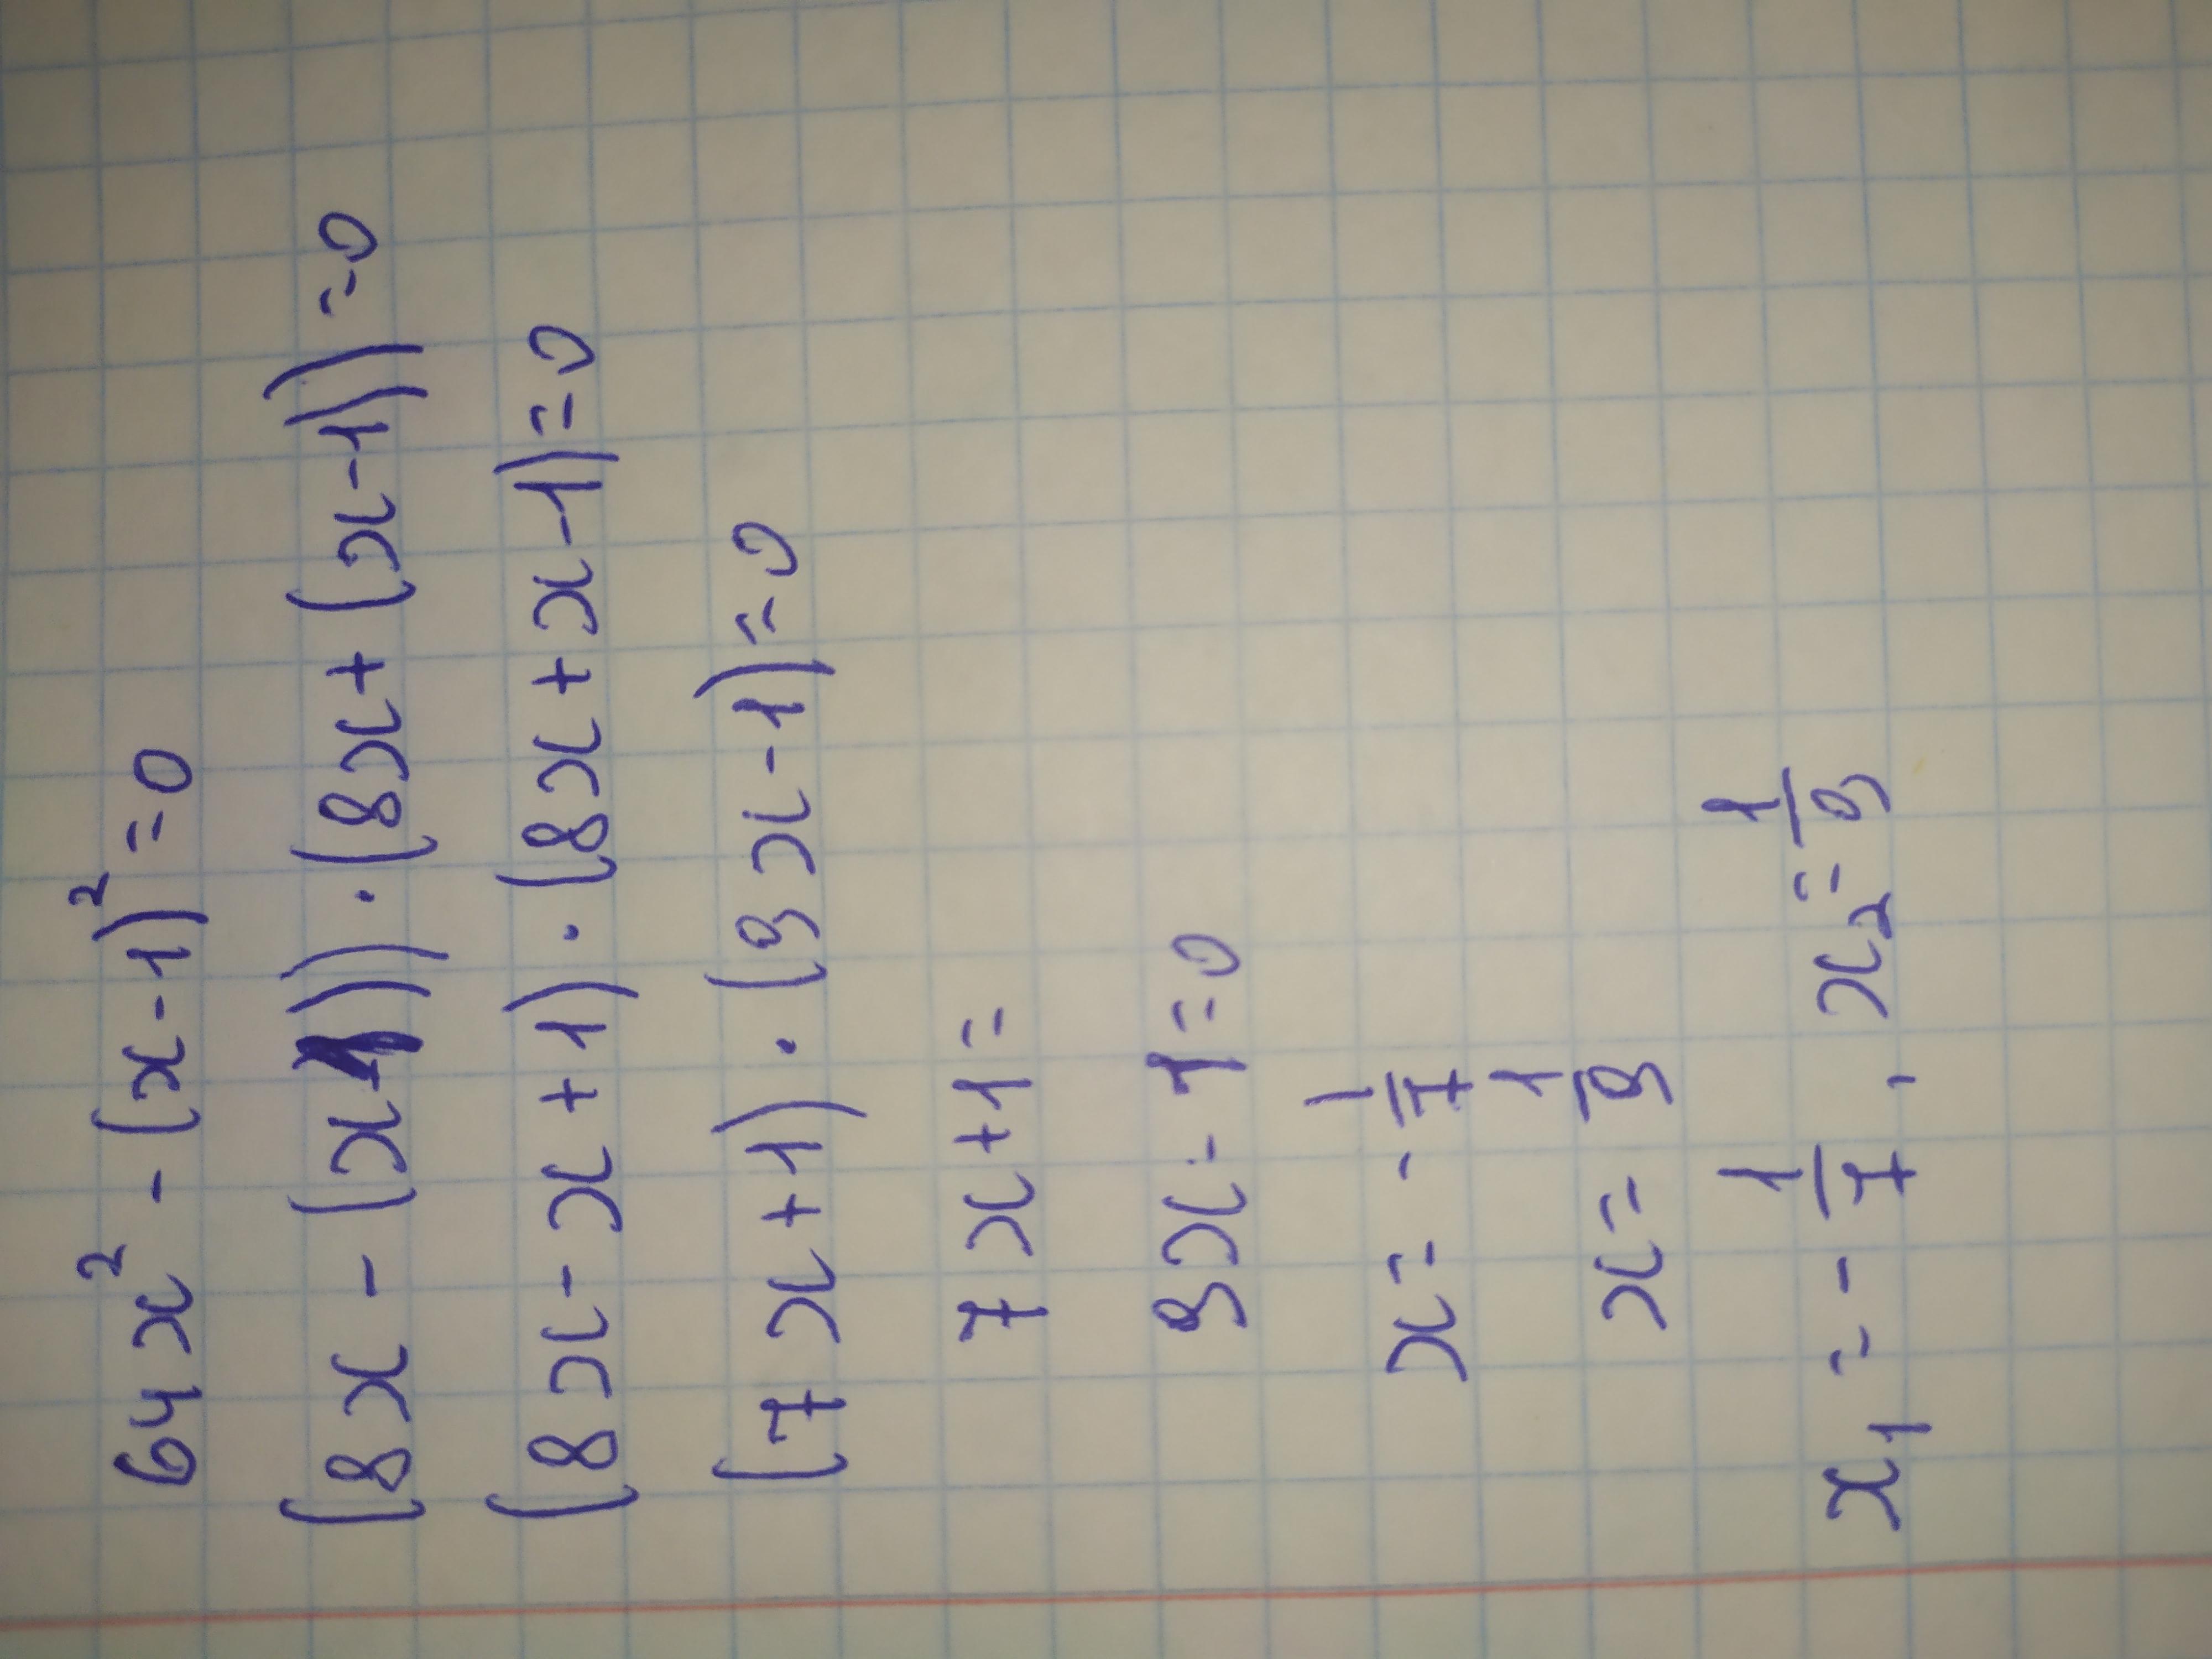 64x² - (x-1)² = 0
(8x - (x-1)) · (8x + (x-1)) = 0
(8x - x + 1) · (8x + x - 1) = 0
(7x + 1) · (9x - 1) = 0
7x + 1 =
9x - 1 = 0
x = - 1/7
x = 1/9
x₁ = - 1/7, x₂ = 1/9